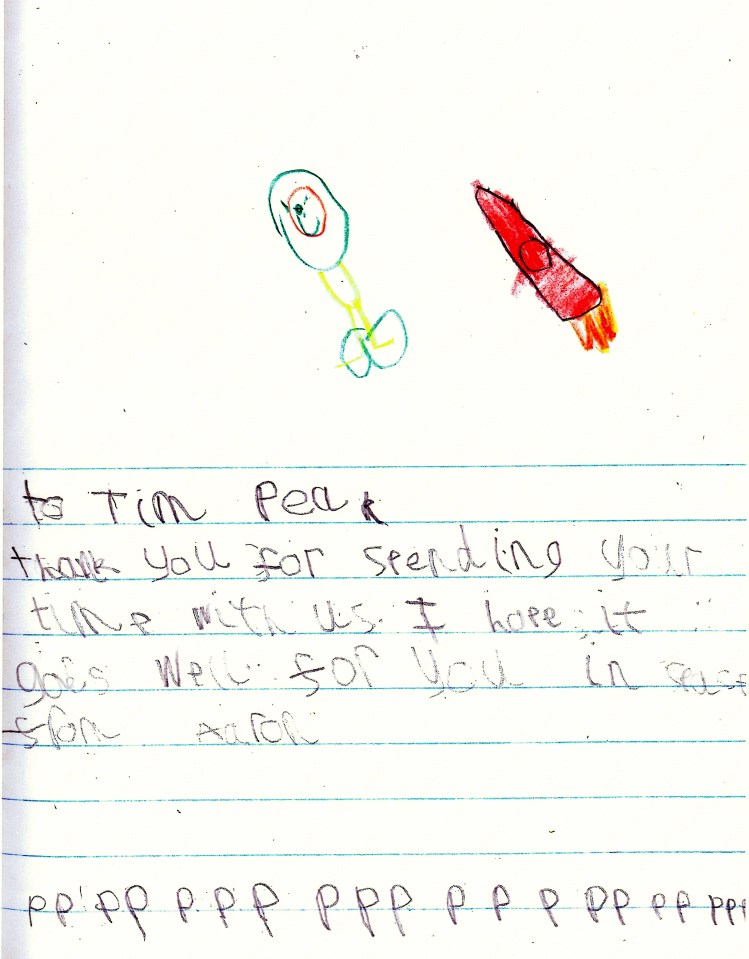 to Tim Peak
thank you for spending your
time with us. I hope it
goes well for you in
from Aaron
pp pp p p p ppp p p p pp pp ppp